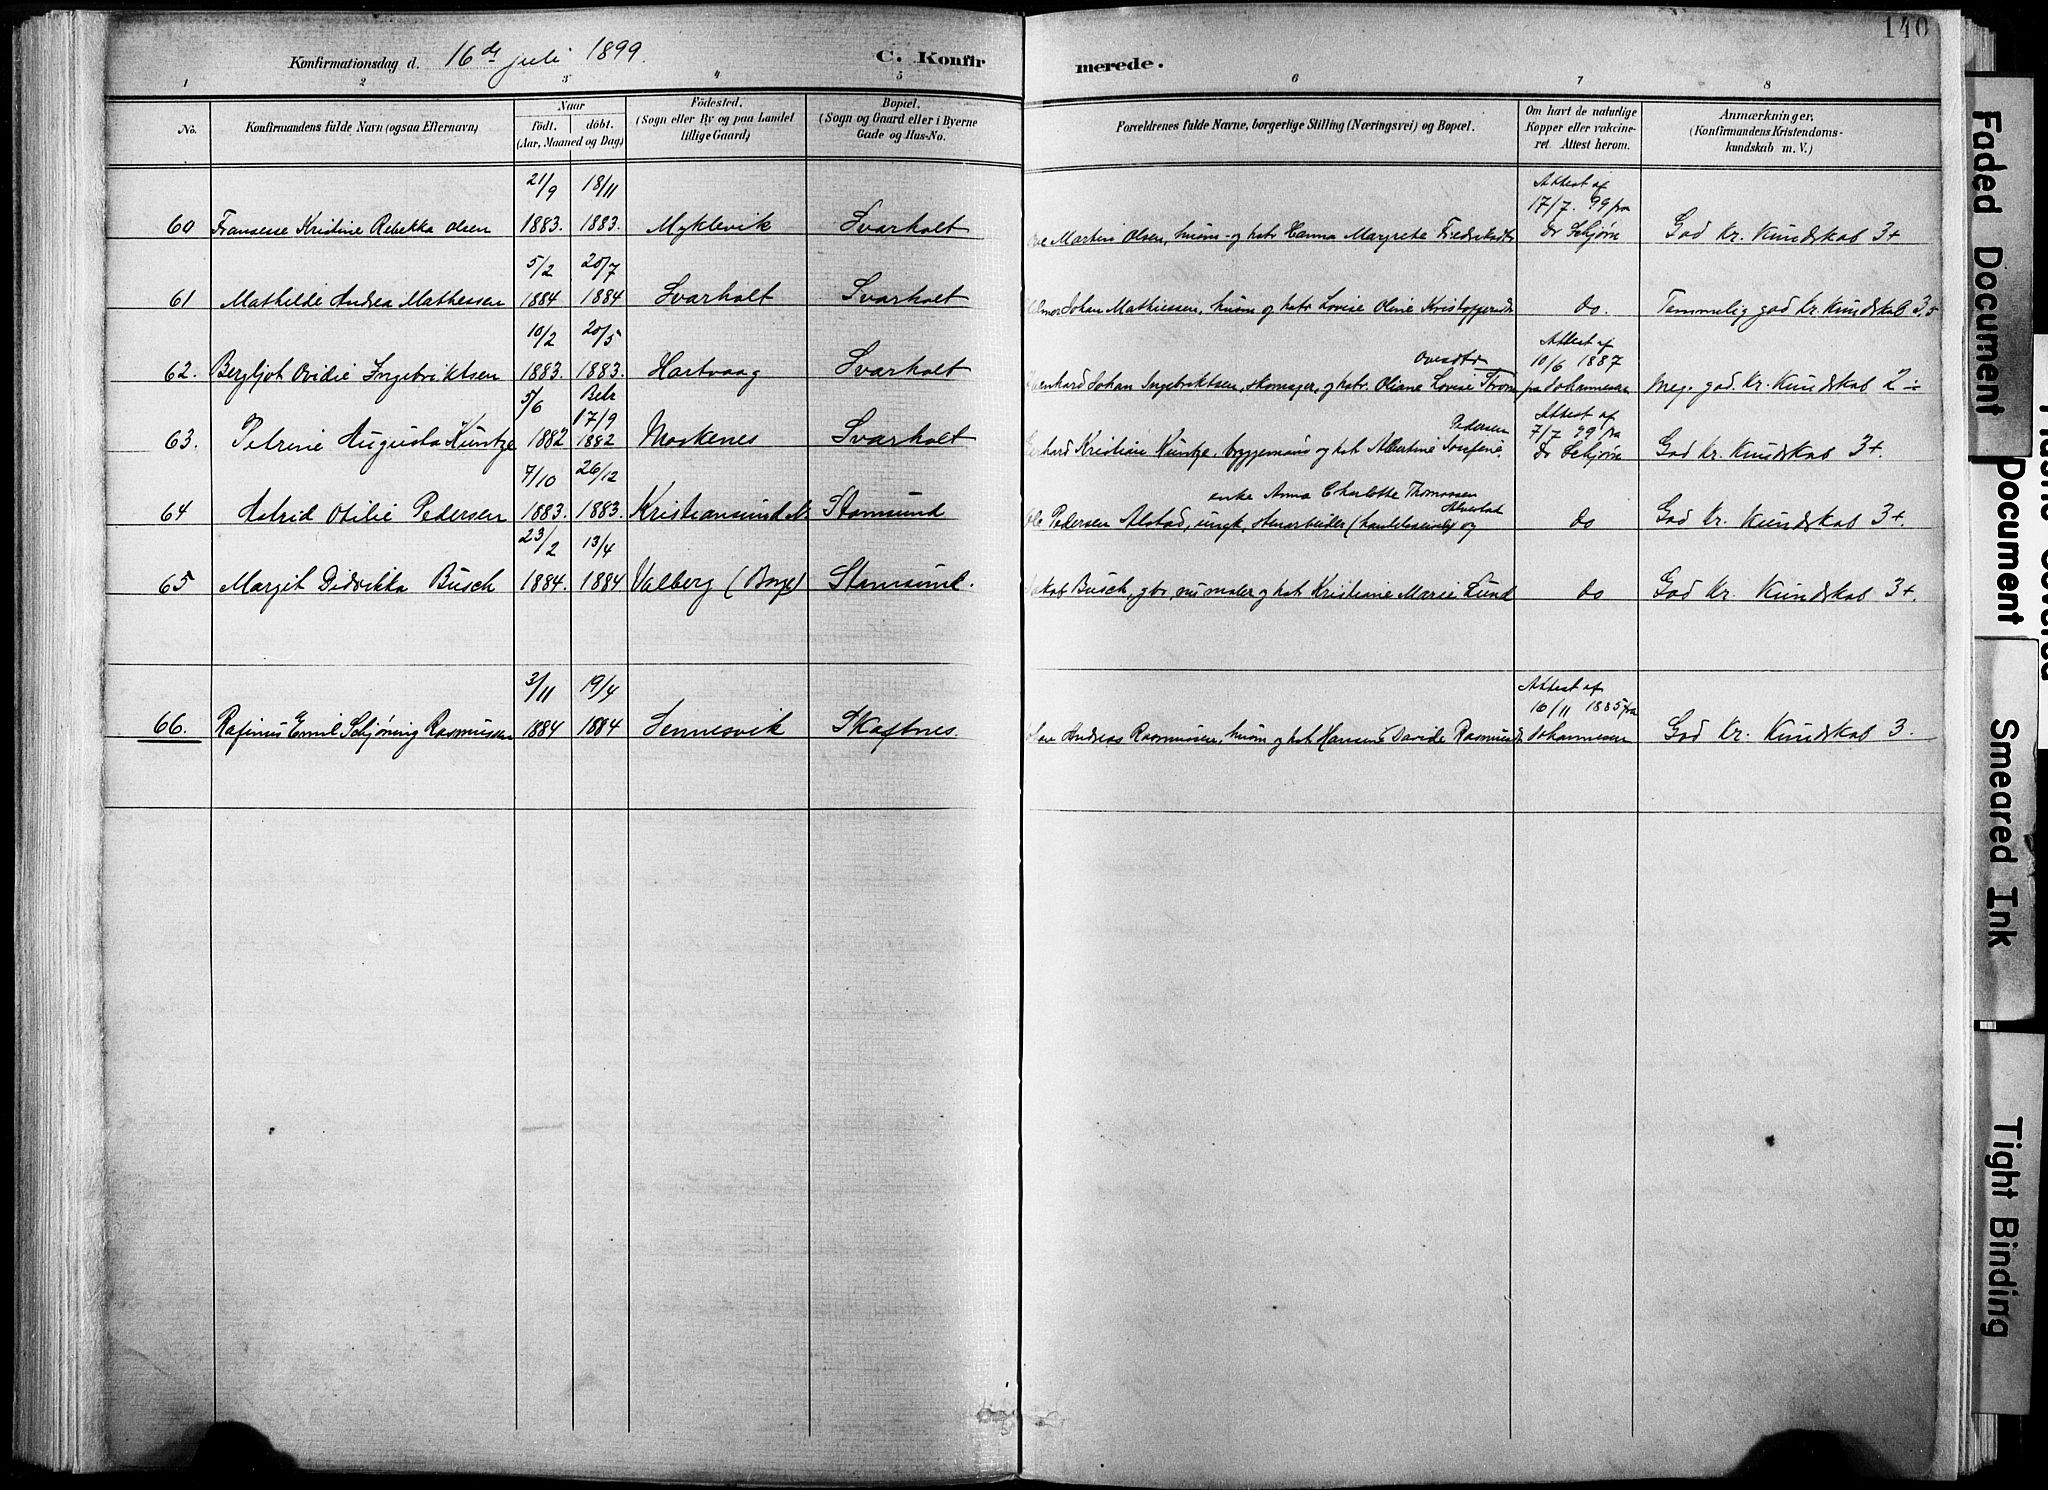 140
Konfirmationsdag d. 16de juli 1899. C. Konfirmerede.
1 2 3 4 5 6 7 8
No. Konfirmandens fulde Navn (ogsaa Efternavn) Naar født. døbt. (Aar, Maaned og Dag) Fødested. (Sogn eller By og paa Landet tillige Gaard) Bopæl. (Sogn og Gaard eller i Byerne Gade og Hus-No. Forældrenes fulde Navne, borgerlige Stilling (Næringsvei) og Bopæl. Om havt de naturlige Kopper eller vakcineret. Attest herom. Anmærkninger. (Konfirmandens Kristendomskundskab m. V.)
21/9 18/11 Attest af 17/7. 99 fra
60 Kristine Rebekka Olsen 1883. 1883. Myklevik Svarholt Martin Olsen, husm. og hstr Hanna Margrete Dr Schjøn God Kr. Kundskab 3+
5/2 20/7
61 Mathilde Andrea Mathessen 1884 1884 Svarholt Svarholt Johan Mathiessen, husm og hstr Lovise Oline do. Temmelig god Kr. Kundskab 3,5
10/2 20/5 Attest af 10/6 1887
62. Bergljot Ovidie Ingebriktsen 1883. 1883. Hartvaag Svarholt Johan Ingebriktsen, skomager, og hstr. Oliane Lovise fra Johannesen Meg. god. Kr. Kundskab 2÷
5/6 Bekr 17/9 Pedersen Attest af 7/7 99 fra
63. Petrine Augusta Kuntze 1882 1882 Moskenes Svarholt Kristian Kuntze, byggemans og hst Albertine Josefine Dr Schjøn God Kr. Kundskab 3+.
7/10 26/12 enke Anna Charlotte Thomassen
64 Astrid Otilie Pedersen 1883. 1883. Kristiansund N. Stamsund Ole Pedersen Alstad, ungk, stenarbeider og do God Kr. Kundskab 3+.
23/2 13/4
65 Margit Didrikka Busch 1884. 1884 Valberg (Borge) Stamsund. Jakob Busch, gbr, nu maler og hst Kristiane Marie Lund do God Kr. Kundskab 3+.
3/11 19/4 Attest af 10/11 1885 fra
66. Rafinus Emil Schjøning Rasmussen 1884 1884 Sennesvik Skaftnes. Andreas Rasmussen, husm og hst Hansine Davide Johannesen God Kr. Kundskab 3.
Faded Document
Document
Smeared Ink
Tight Binding